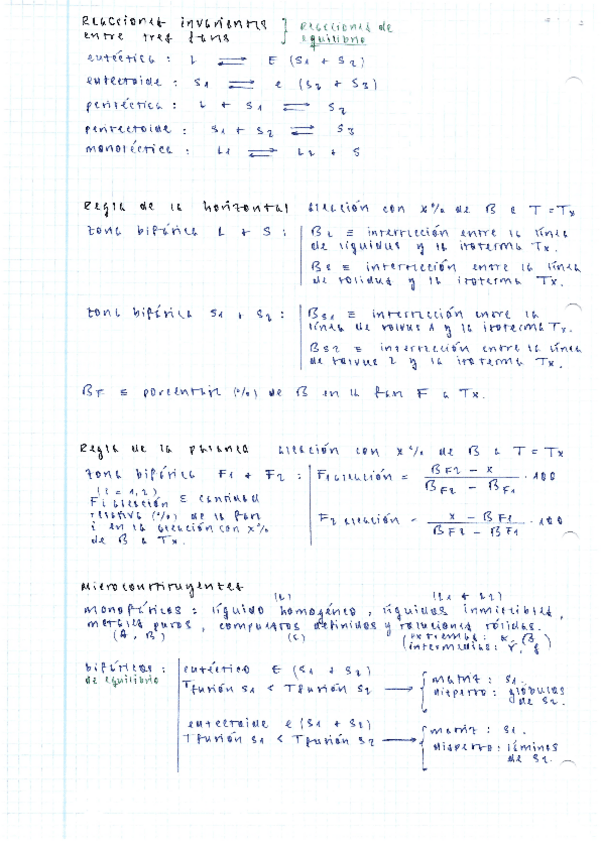 Reacciones invariantes } Reacciones de
entre tres fases equilibrio
eutéctica : L ⇌ E (S1 + S2)
eutectoide : S1 ⇌ e (S2 + S3)
peritéctica : L + S1 ⇌ S2
peritectoide : S1 + S2 ⇌ S3
monotéctica : L1 ⇌ L2 + S
Regla de la horizontal aleación con x% de B a T = Tx
zona bifásica L + S : BL ≡ intersección entre la línea
de líquidus y la isoterma Tx.
BS ≡ intersección entre la línea
de solidus y la isoterma Tx.
zona bifásica S1 + S2 : BS1 ≡ intersección entre la
línea de solvus 1 y la isoterma Tx.
BS2 ≡ intersección entre la línea
de solvus 2 y la isoterma Tx.
BF ≡ porcentaje (%) de B en la fase F a Tx.
Regla de la palanca aleación con x% de B a T = Tx
zona bifásica F1 + F2 : F1 aleación = (BF2 - x) / (BF2 - BF1) · 100
(i = 1, 2)
Fi aleación ≡ cantidad
relativa (%) de la fase
i en la aleación con x%
de B a Tx.
F2 aleación = (x - BF1) / (BF2 - BF1) · 100
Microconstituyentes
(L) (L1 + L2)
monofásicos : líquido homogéneo, líquidos inmiscibles,
metales puros, compuestos definidos y soluciones sólidas.
(A, B) (C) (extremas: α, β)
(intermedias: γ, δ)
bifásicos : eutéctico E (S1 + S2)
de equilibrio Tfusión S1 < Tfusión S2 → { matriz : S1.
disperso : glóbulos
de S2.
eutectoide e (S1 + S2)
Tfusión S1 < Tfusión S2 → { matriz : S1.
disperso : láminas
de S2.